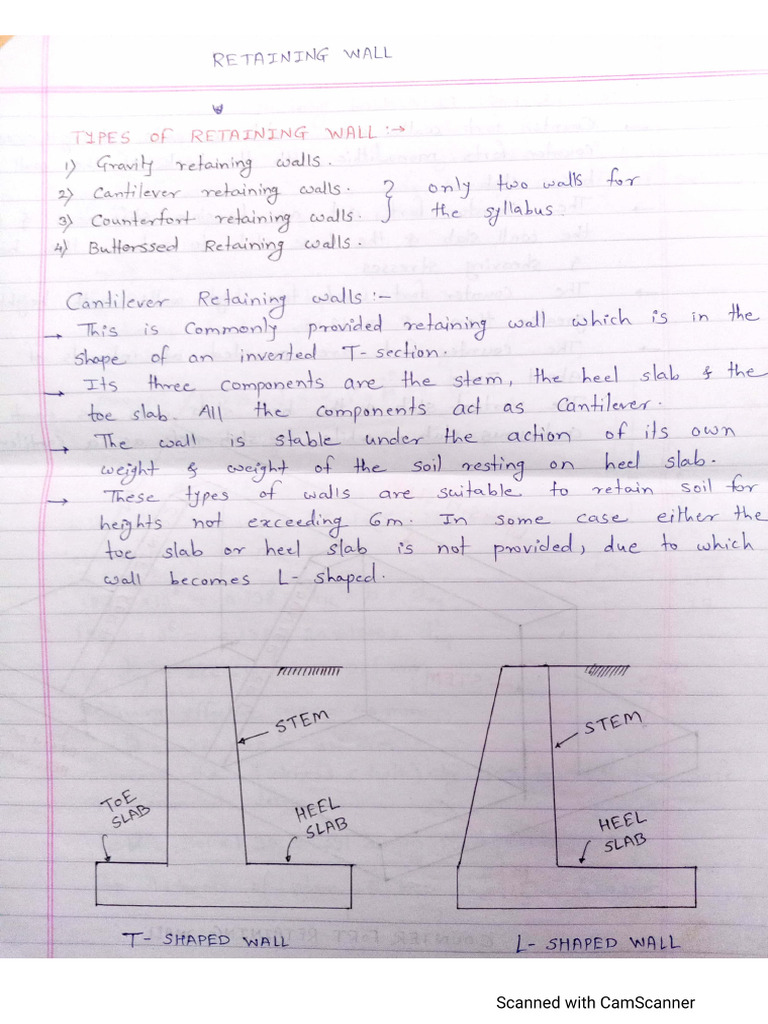 RETAINING WALL
TYPES OF RETAINING WALL :→
1) Gravity retaining walls.
2) Cantilever retaining walls. } only two walls for
3) Counterfort retaining walls. the syllabus.
4) Butterssed Retaining walls.
Cantilever Retaining walls :-
→ This is Commonly provided retaining wall which is in the
shape of an inverted T-section.
→ Its three components are the stem, the heel slab & the
toe slab. All the components act as Cantilever.
→ The wall is stable under the action of its own
weight & weight of the soil resting on heel slab.
→ These types of walls are suitable to retain soil for
heights not exceeding 6m. In some case either the
toe slab or heel slab is not provided, due to which
wall becomes L- shaped.
STEM
TOE
SLAB
HEEL
SLAB
T- SHAPED WALL
STEM
HEEL
SLAB
L- SHAPED WALL
Scanned with CamScanner